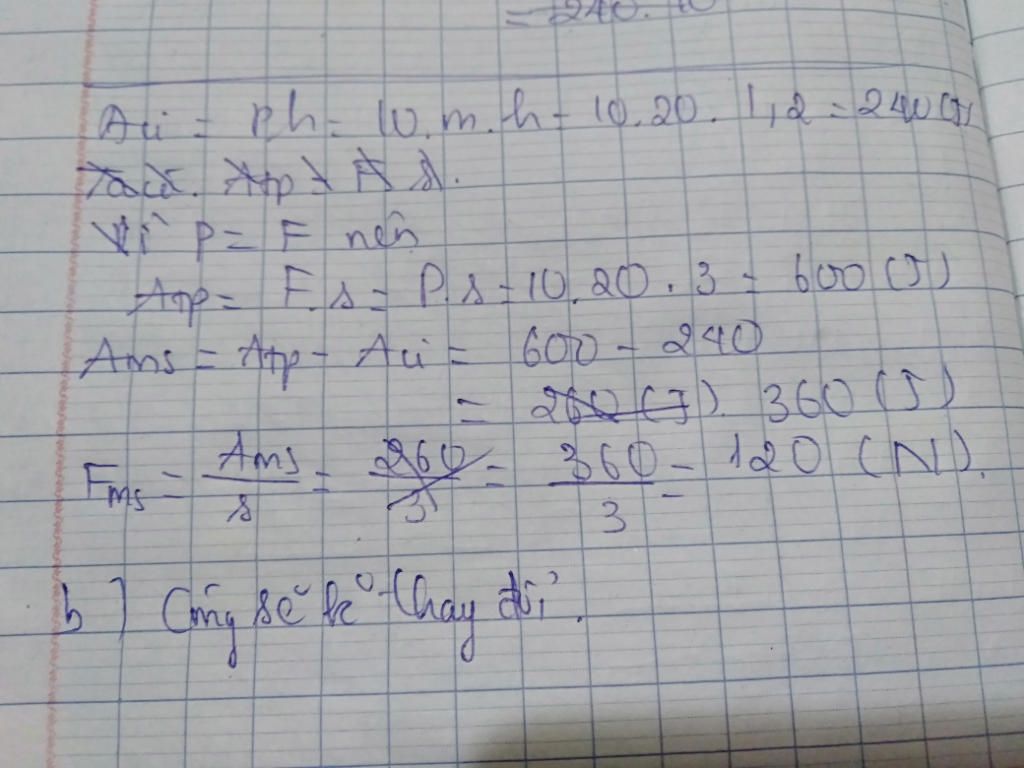 = 240. 10
Aci = P.h = 10.m.h = 10.20. 1,2 = 240(J)
Ta có. Atp = A s.
Vì P = F nên
Atp = F.s = P.s = 10.20.3 = 600 (J)
Ams = Atp - Aci = 600 - 240
= 260 (J). 360 (J)
Fms = Ams/s = 260/3 = 360/3 = 120 (N).
b) Cũng sẽ k⁰ thay đổi.